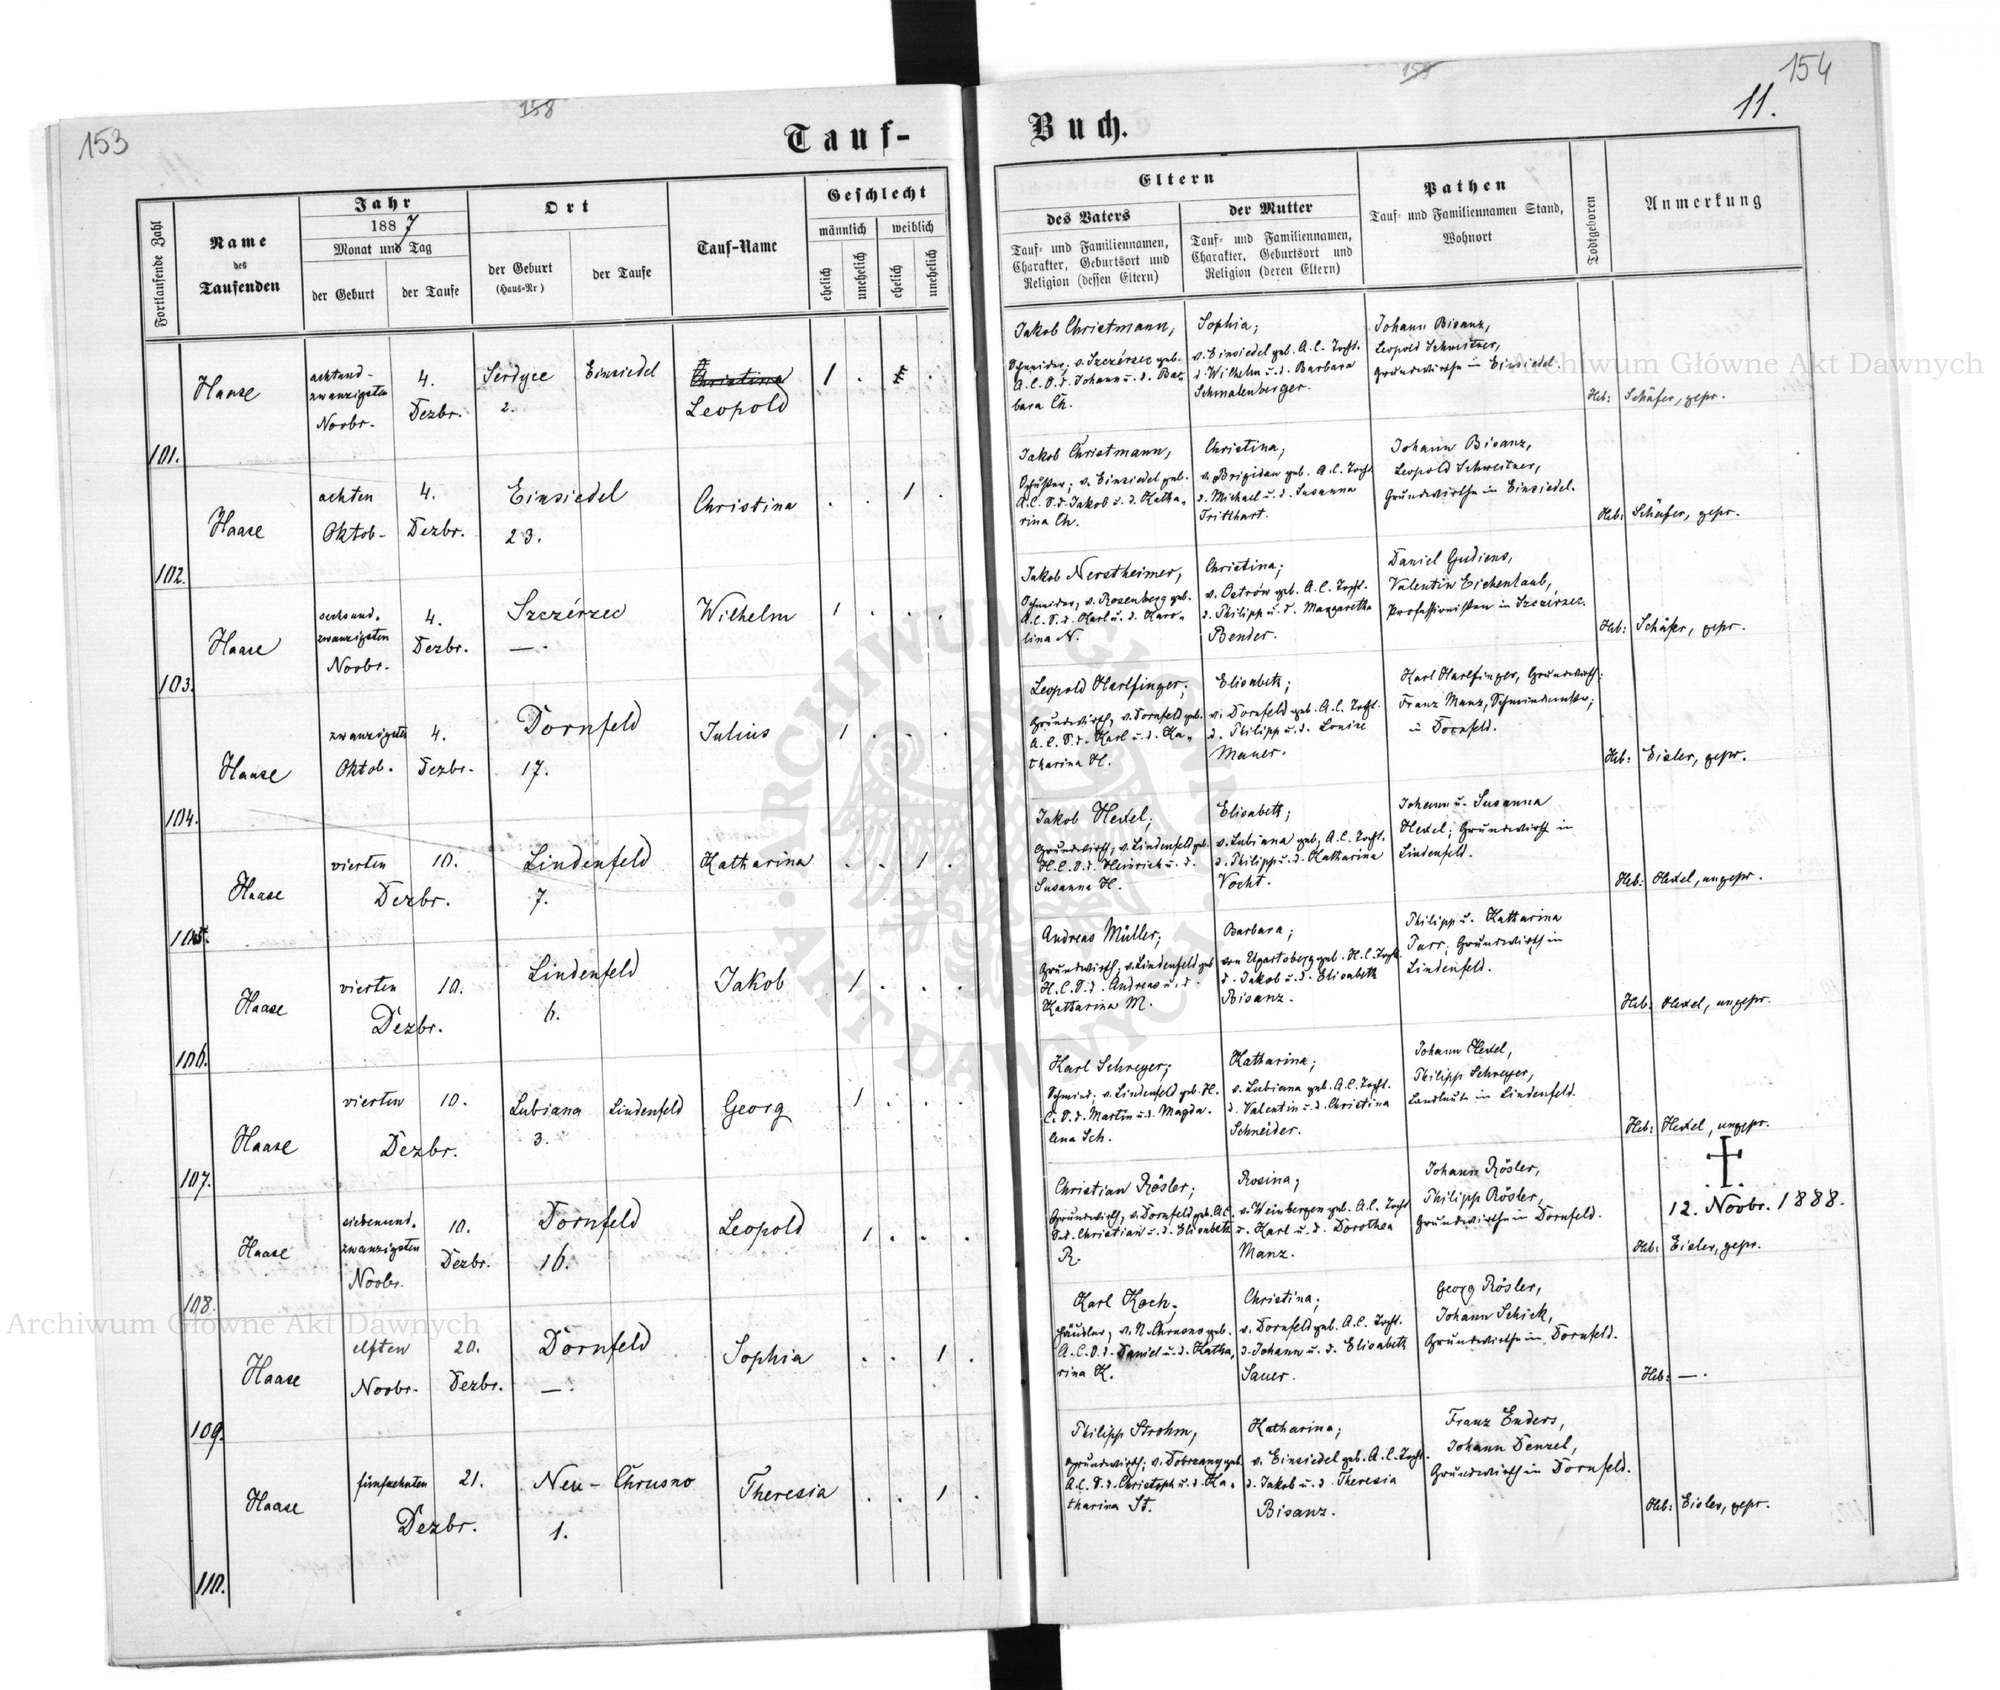 153
158
Tauf-
Fortlaufende Zahl
Name
des
Taufenden
Jahr
1887
Monat und Tag
der Geburt
der Taufe
Ort
der Geburt
(Haus-Nr)
der Taufe
Tauf-Name
Geschlecht
männlich
weiblich
ehelich
unehelich
ehelich
unehelich
101.
Haase
achtund-
zwanzigsten
Novbr.
4.
Dezbr.
Serdyce
2.
Einsiedel
Christina
Leopold
1 . .
102.
Haase
achten
Oktob-
4.
Dezbr.
Einsiedel
23.
Christina
. . 1 .
103.
Haase
sechsund-
zwanzigsten
Novbr.
4.
Dezbr.
Szczérzec
— .
Wilhelm
1 . . .
104.
Haase
zwanzigsten
Oktob.
4.
Dezbr.
Dornfeld
17.
Julius
1 . . .
105.
Haase
vierten
10.
Dezbr.
Lindenfeld
7.
Katharina
. . 1 .
106.
Haase
vierten
10.
Dezbr.
Lindenfeld
6.
Jakob
1 . . .
107.
Haase
vierten
10.
Dezbr.
Lubiana
3.
Lindenfeld
Georg
1 . . .
108.
Haase
siebenund-
zwanzigsten
Novbr.
10.
Dezbr.
Dornfeld
16.
Leopold
1 . . .
109.
Haase
elften
Novbr.
20.
Dezbr.
Dornfeld
— .
Sophia
. . 1 .
110.
Haase
fünfzehnten
21.
Dezbr.
Neu-Chrusno
1.
Theresia
. . 1 .
159
154
11.
Buch.
Eltern
des Vaters
Tauf- und Familiennamen,
Charakter, Geburtsort und
Religion (dessen Eltern)
der Mutter
Tauf- und Familiennamen,
Charakter, Geburtsort und
Religion (deren Eltern)
Pathen
Tauf- und Familiennamen Stand,
Wohnort
Todtgeboren
Anmerkung
Jakob Christmann,
Schneider; v. Szczérzec geb.
A.C. S.d. Johann u. d. Bar-
bara Ch.
Sophia;
v. Einsiedel geb. A.C. Tocht.
d. Wilhelm u. d. Barbara
Schmalenberger.
Johann Bisanz,
Leopold Schweitzer,
Grundwirthe in Einsiedel.
Heb: Schäfer, gepr.
Jakob Christmann,
Schuster; v. Einsiedel geb.
A.C. S.d. Jakob u. d. Katha-
rina Ch.
Christina;
v. Brigidau geb. A.C. Tocht
d. Michael u. d. Susanna
Tritthart.
Johann Bisanz,
Leopold Schweitzer,
Grundwirthe in Einsiedel.
Heb: Schäfer, gepr.
Jakob Nerstheimer,
Schneider; v. Rosenberg geb.
A.C. S.d. Karl u. d. Karo-
lina N.
Christina;
v. Ostrów geb. A.C. Tocht.
d. Philipp u. d. Margaretha
Bender.
Daniel Gudiens,
Valentin Eichenlaub,
Professionisten in Szczérzec.
Heb: Schäfer, gepr.
Leopold Harlfinger;
Grundwirth, v. Dornfeld geb.
A.C. S.d. Karl u. d. Ka-
tharina H.
Elisabeth;
v. Dornfeld geb. A.C. Tocht.
d. Philipp u. d. Louise
Mauer.
Karl Harlfinger, Grundwirth;
Franz Manz, Schmiedemstr.;
in Dornfeld.
Heb: Eisler, gepr.
Jakob Hexel;
Grundwirth; v. Lindenfeld geb.
H.C. S.d. Heinrich u. d.
Susanna H.
Elisabeth;
v. Lubiana geb. A.C. Tocht.
d. Philipp u. d. Katharina
Vocht.
Johann u. Susanna
Hexel; Grundwirth in
Lindenfeld.
Heb: Hexel, ungepr.
Andreas Müller;
Grundwirth; v. Lindenfeld geb
H.C. S.d. Andreas u. d.
Katharina M.
Barbara;
von Ugartsberg geb. H.C. Tocht.
d. Jakob u. d. Elisabeth
Bisanz.
Philipp u. Katharina
Parr; Grundwirth in
Lindenfeld.
Heb: Hexel, ungepr.
Karl Schreyer;
Schmied; v. Lindenfeld geb. H.
C. S.d. Martin u. d. Magda-
lena Sch.
Katharina;
v. Lubiana geb. A.C. Tocht.
d. Valentin u. d. Christina
Schneider.
Johann Hexel,
Philipp Schreyer,
Landleute in Lindenfeld.
Heb: Hexel, ungepr.
Christian Rösler;
Grundwirth, v. Dornfeld geb. A.C.
S.d. Christian u. d. Elisabeth
R.
Rosina;
v. Weinbergen geb. A.C. Tocht
d. Karl u. d. Dorothea
Manz.
Johann Rösler,
Philipp Rösler,
Grundwirthe in Dornfeld.
12. Novbr. 1888.
Heb: Eisler, gepr.
Karl Koch;
Häusler; v. N. Chrusno geb.
A.C. S.d. Daniel u. d. Katha-
rina K.
Christina;
v. Dornfeld geb. A.C. Tocht.
d. Johann u. d. Elisabeth
Sauer.
Georg Rösler,
Johann Schick,
Grundwirthe in Dornfeld.
Heb: — .
Philipp Strohm,
Grundwirth; v. Dobrzany geb.
A.C. S.d. Christoph u. d. Ka-
tharina St.
Katharina;
v. Einsiedel geb. A.C. Tocht.
d. Jakob u. d. Theresia
Bisanz.
Franz Enders,
Johann Denzel,
Grundwirth in Dornfeld.
Heb: Eisler, gepr.
Archiwum Główne Akt Dawnych
Archiwum Główne Akt Dawnych